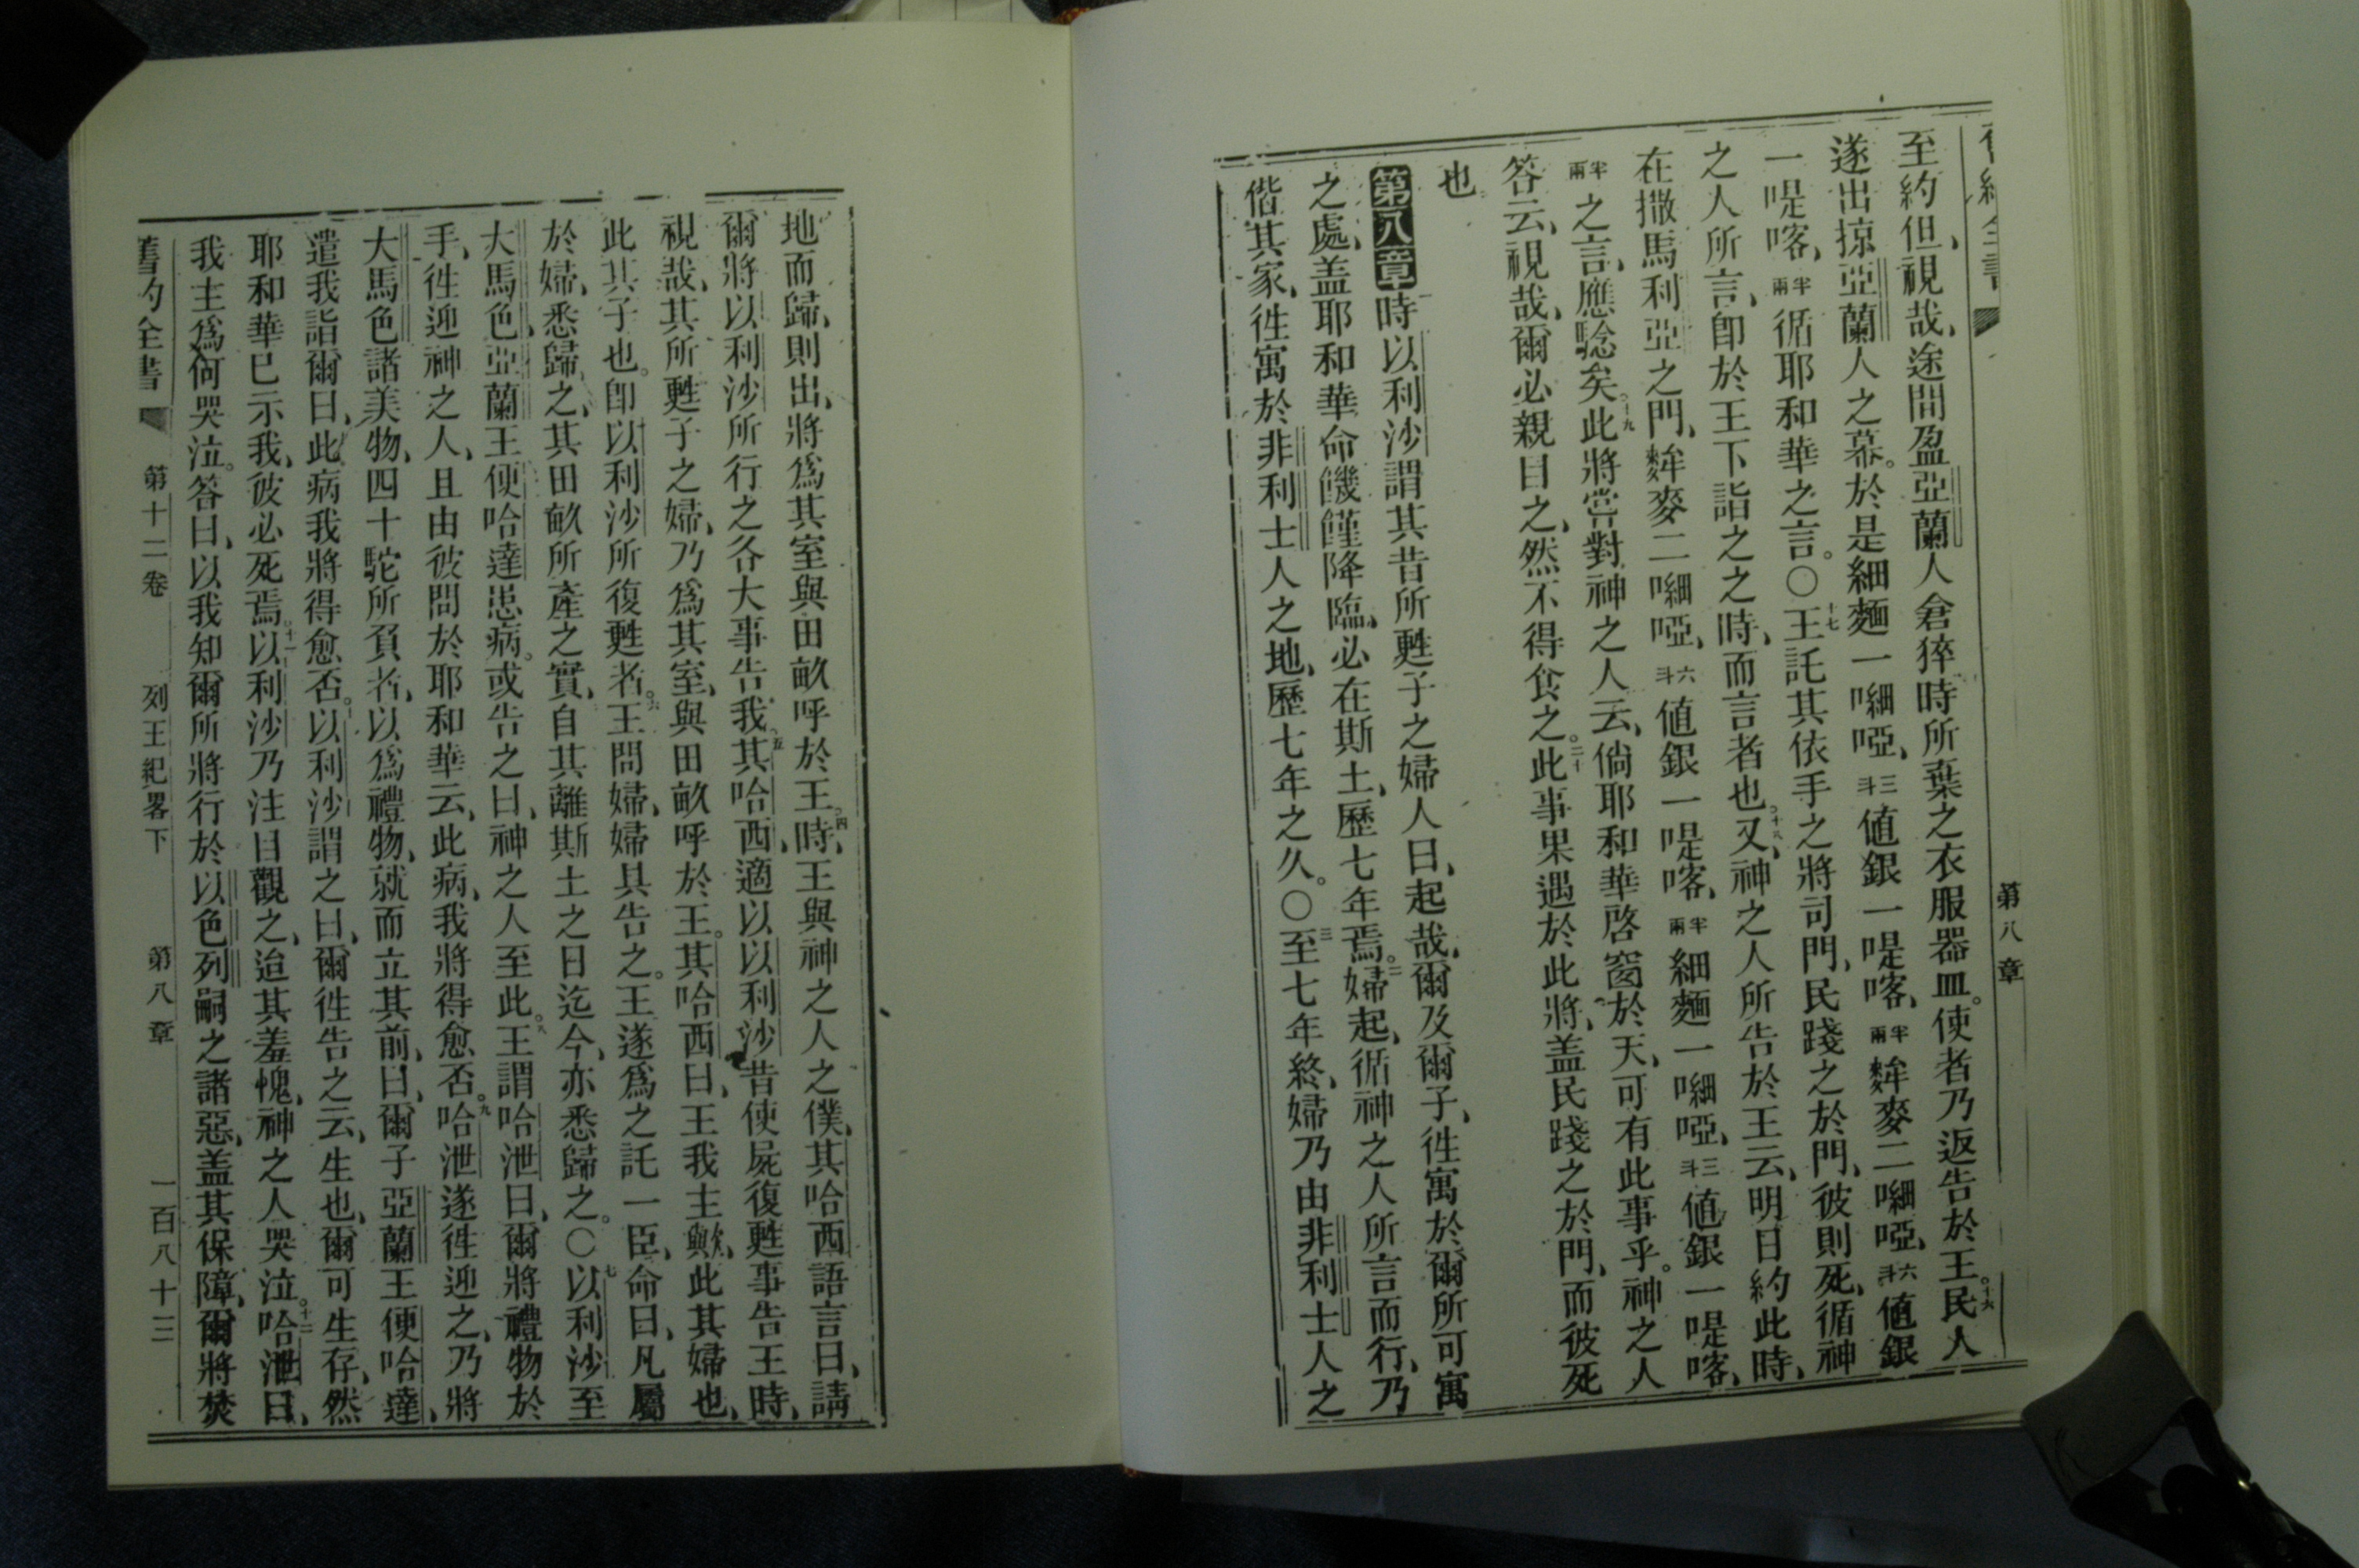 舊約全書 第八章
至約但、視哉、途間盈亞蘭人倉猝時所棄之衣服器皿。使者乃返告於王。十六民人
遂出掠亞蘭人之幕。於是細麵一㗭啞、三斗値銀一㖷喀、半兩麰麥二㗭啞、六斗値銀
一㖷喀、半兩循耶和華之言。〇十七王託其依手之將司門、民踐之於門、彼則死、循神
之人所言、卽於王下詣之之時、而言者也。十八又、神之人所告於王云、明日約此時、
在撒馬利亞之門、麰麥二㗭啞、六斗値銀一㖷喀、半兩細麵一㗭啞、三斗値銀一㖷喀、
半兩之言、應騐矣。十九此將嘗對神之人云、倘耶和華啓窗於天、可有此事乎。神之人
答云、視哉、爾必親目之、然不得食之。二十此事果遇於此將、盖民踐之於門、而彼死
也。
第八章時以利沙謂其昔所甦子之婦人曰、起哉、爾及爾子、徃寓於爾所可寓
之處、盖耶和華命饑饉降臨、必在斯土、歷七年焉。二婦起、循神之人所言而行、乃
偕其家、徃寓於非利士人之地、歷七年之久。〇三至七年終、婦乃由非利士人之
地而歸、則出、將爲其室與田畝呼於王。四時、王與神之人之僕、其哈西語言曰、請
爾將以利沙所行之各大事告我。五其哈西、適以以利沙昔使屍復甦事告王時、
視哉、其所甦子之婦、乃爲其室、與田畝呼於王。其哈西曰、王我主歟、此其婦也、
此其子也。卽以利沙所復甦者。六王問婦、婦具告之。王遂爲之託一臣、命曰、凡屬
於婦、悉歸之、其田畝所產之實、自其離斯土之日迄今、亦悉歸之。〇七以利沙至
大馬色、亞蘭王便哈達患病。或告之曰、神之人至此。八王謂哈泄曰、爾將禮物於
手、徃迎神之人、且由彼問於耶和華云、此病、我將得愈否。九哈泄遂徃迎之、乃將
大馬色諸美物、四十駝所負者、以爲禮物、就而立其前、曰、爾子亞蘭王便哈達、
遣我詣爾曰、此病我將得愈否。十以利沙謂之曰、爾徃告之云、生也、爾可生存、然
耶和華已示我、彼必死焉。十一以利沙乃注目觀之、迨其羞愧、神之人哭泣。十二哈泄曰、
我主爲何哭泣。答曰、以我知爾所將行於以色列嗣之諸惡、盖其保障、爾將焚
舊約全書 第十二卷 列王紀畧下 第八章 一百八十三